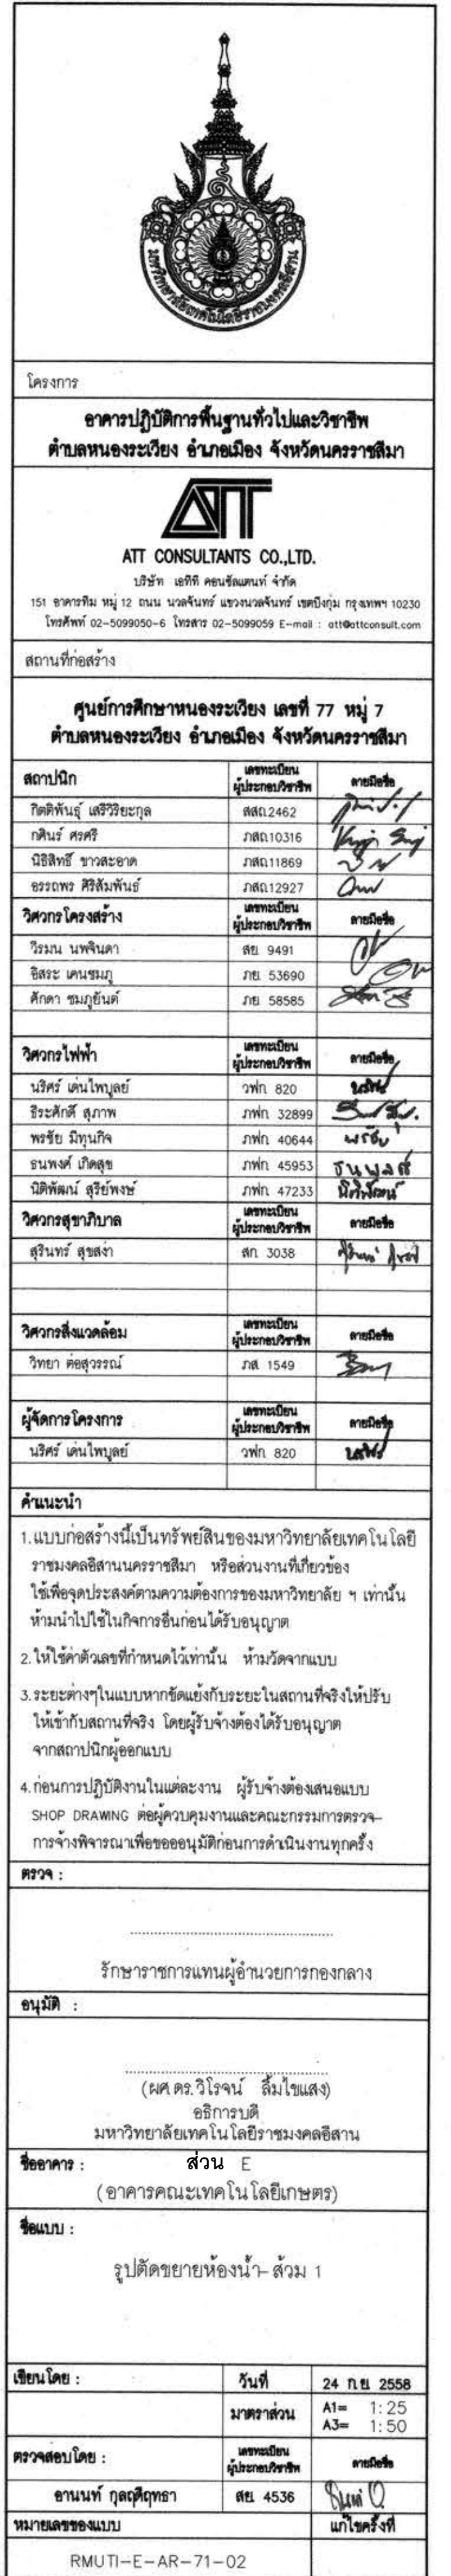 มหาวิทยาลัยเทคโนโลยีราชมงคลอีสาน
โครงการ
อาคารปฏิบัติการพื้นฐานทั่วไปและวิชาชีพ
ตำบลหนองระเวียง อำเภอเมือง จังหวัดนครราชสีมา
ATT
ATT CONSULTANTS CO.,LTD.
บริษัท เอทีที คอนซัลแตนท์ จำกัด
151 อาคารทีม หมู่ 12 ถนน นวลจันทร์ แขวงนวลจันทร์ เขตบึงกุ่ม กรุงเทพฯ 10230
โทรศัพท์ 02-5099050-6 โทรสาร 02-5099059 E-mail : att@attconsult.com
สถานที่ก่อสร้าง
ศูนย์การศึกษาหนองระเวียง เลขที่ 77 หมู่ 7
ตำบลหนองระเวียง อำเภอเมือง จังหวัดนครราชสีมา
สถาปนิก เลขทะเบียน ผู้ประกอบวิชาชีพ ลายมือชื่อ
กิตติพันธุ์ เสรีวิริยะกุล สสถ.2462
กศินร์ ศรศรี ภสถ.10316
นิธิสิทธิ์ ขาวสะอาด ภสถ.11869
อรรถพร ศิริสัมพันธ์ ภสถ.12927
วิศวกรโครงสร้าง เลขทะเบียน ผู้ประกอบวิชาชีพ ลายมือชื่อ
วีรมน นพจินดา สย. 9491
อิสระ เคนชมภู ภย. 53690
ศักดา ชมภูยันต์ ภย. 58585
วิศวกรไฟฟ้า เลขทะเบียน ผู้ประกอบวิชาชีพ ลายมือชื่อ
นริศร์ เด่นไพบูลย์ วฟก. 820
ธีระศักดิ์ สุภาพ ภฟก. 32899
พรชัย มีทุนกิจ ภฟก. 40644 พรชัย
ธนพงศ์ เกิดสุข ภฟก. 45953 ธนพงศ์
นิติพัฒน์ สุรีย์พงษ์ ภฟก. 47233 นิติพัฒน์
วิศวกรสุขาภิบาล เลขทะเบียน ผู้ประกอบวิชาชีพ ลายมือชื่อ
สุรินทร์ สุขสง่า สก. 3038
วิศวกรสิ่งแวดล้อม เลขทะเบียน ผู้ประกอบวิชาชีพ ลายมือชื่อ
วิทยา ต่อสุวรรณ์ ภส. 1549
ผู้จัดการโครงการ เลขทะเบียน ผู้ประกอบวิชาชีพ ลายมือชื่อ
นริศร์ เด่นไพบูลย์ วฟก. 820
คำแนะนำ
1. แบบก่อสร้างนี้เป็นทรัพย์สินของมหาวิทยาลัยเทคโนโลยี
ราชมงคลอีสานนครราชสีมา หรือส่วนงานที่เกี่ยวข้อง
ใช้เพื่อจุดประสงค์ตามความต้องการของมหาวิทยาลัย ฯ เท่านั้น
ห้ามนำไปใช้ในกิจการอื่นก่อนได้รับอนุญาต
2. ให้ใช้ค่าตัวเลขที่กำหนดไว้เท่านั้น ห้ามวัดจากแบบ
3. ระยะต่างๆในแบบหากขัดแย้งกับระยะในสถานที่จริงให้ปรับ
ให้เข้ากับสถานที่จริง โดยผู้รับจ้างต้องได้รับอนุญาต
จากสถาปนิกผู้ออกแบบ
4. ก่อนการปฏิบัติงานในแต่ละงาน ผู้รับจ้างต้องเสนอแบบ
SHOP DRAWING ต่อผู้ควบคุมงานและคณะกรรมการตรวจ-
การจ้างพิจารณาเพื่อขออนุมัติก่อนการดำเนินงานทุกครั้ง
ตรวจ :
รักษาราชการแทนผู้อำนวยการกองกลาง
อนุมัติ :
(ผศ.ดร.วิโรจน์ ลิ้มไขแสง)
อธิการบดี
มหาวิทยาลัยเทคโนโลยีราชมงคลอีสาน
ชื่ออาคาร : ส่วน E
(อาคารคณะเทคโนโลยีเกษตร)
ชื่อแบบ :
รูปตัดขยายห้องน้ำ-ส้วม 1
เขียนโดย : วันที่ 24 ก.ย. 2558
มาตราส่วน A1= 1:25
A3= 1:50
ตรวจสอบโดย : เลขทะเบียน ผู้ประกอบวิชาชีพ ลายมือชื่อ
อานนท์ กุลฤดีฤทธา สย. 4536
หมายเลขของแบบ แก้ไขครั้งที่
RMUTI-E-AR-71-02